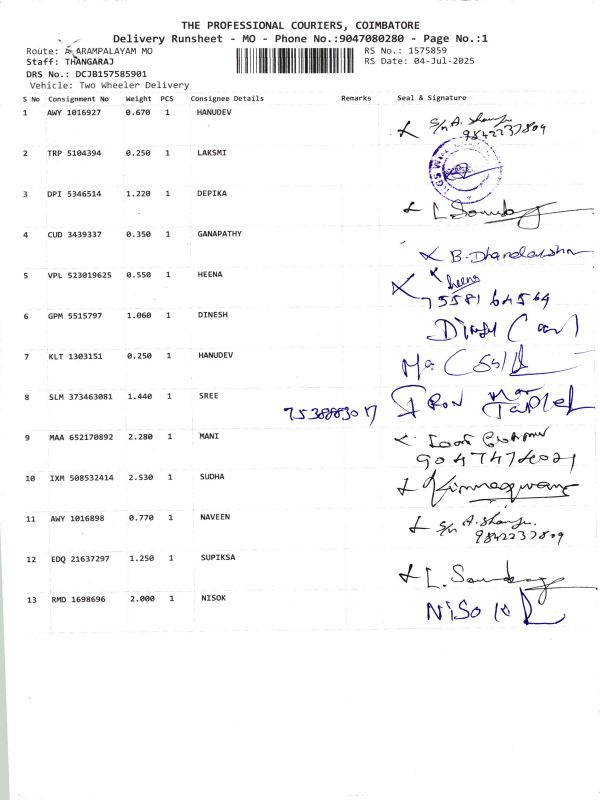 THE PROFESSIONAL COURIERS, COIMBATORE
Delivery Runsheet - MO - Phone No.:9047080280 - Page No.:1
Route: A ARAMPALAYAM MO RS No.: 1575859
Staff: THANGARAJ RS Date: 04-Jul-2025
DRS No.: DCJB157585901
Vehicle: Two Wheeler Delivery
S No Consignment No Weight PCS Consignee Details Remarks Seal & Signature
1 AWY 1016927 0.670 1 HANUDEV
9842237809
2 TRP 5104394 0.250 1 LAKSMI
3 DPI 5346514 1.220 1 DEPIKA
4 CUD 3439337 0.350 1 GANAPATHY
5 VPL 523019625 0.550 1 HEENA
heena
75581 64569
6 GPM 5515797 1.060 1 DINESH
7 KLT 1303151 0.250 1 HANUDEV
8 SLM 373463081 1.440 1 SREE
9 MAA 652170892 2.280 1 MANI
9047474021
10 IXM 508532414 2.530 1 SUDHA
11 AWY 1016898 0.770 1 NAVEEN
9842237809
12 EDQ 21637297 1.250 1 SUPIKSA
13 RMD 1698696 2.000 1 NISOK